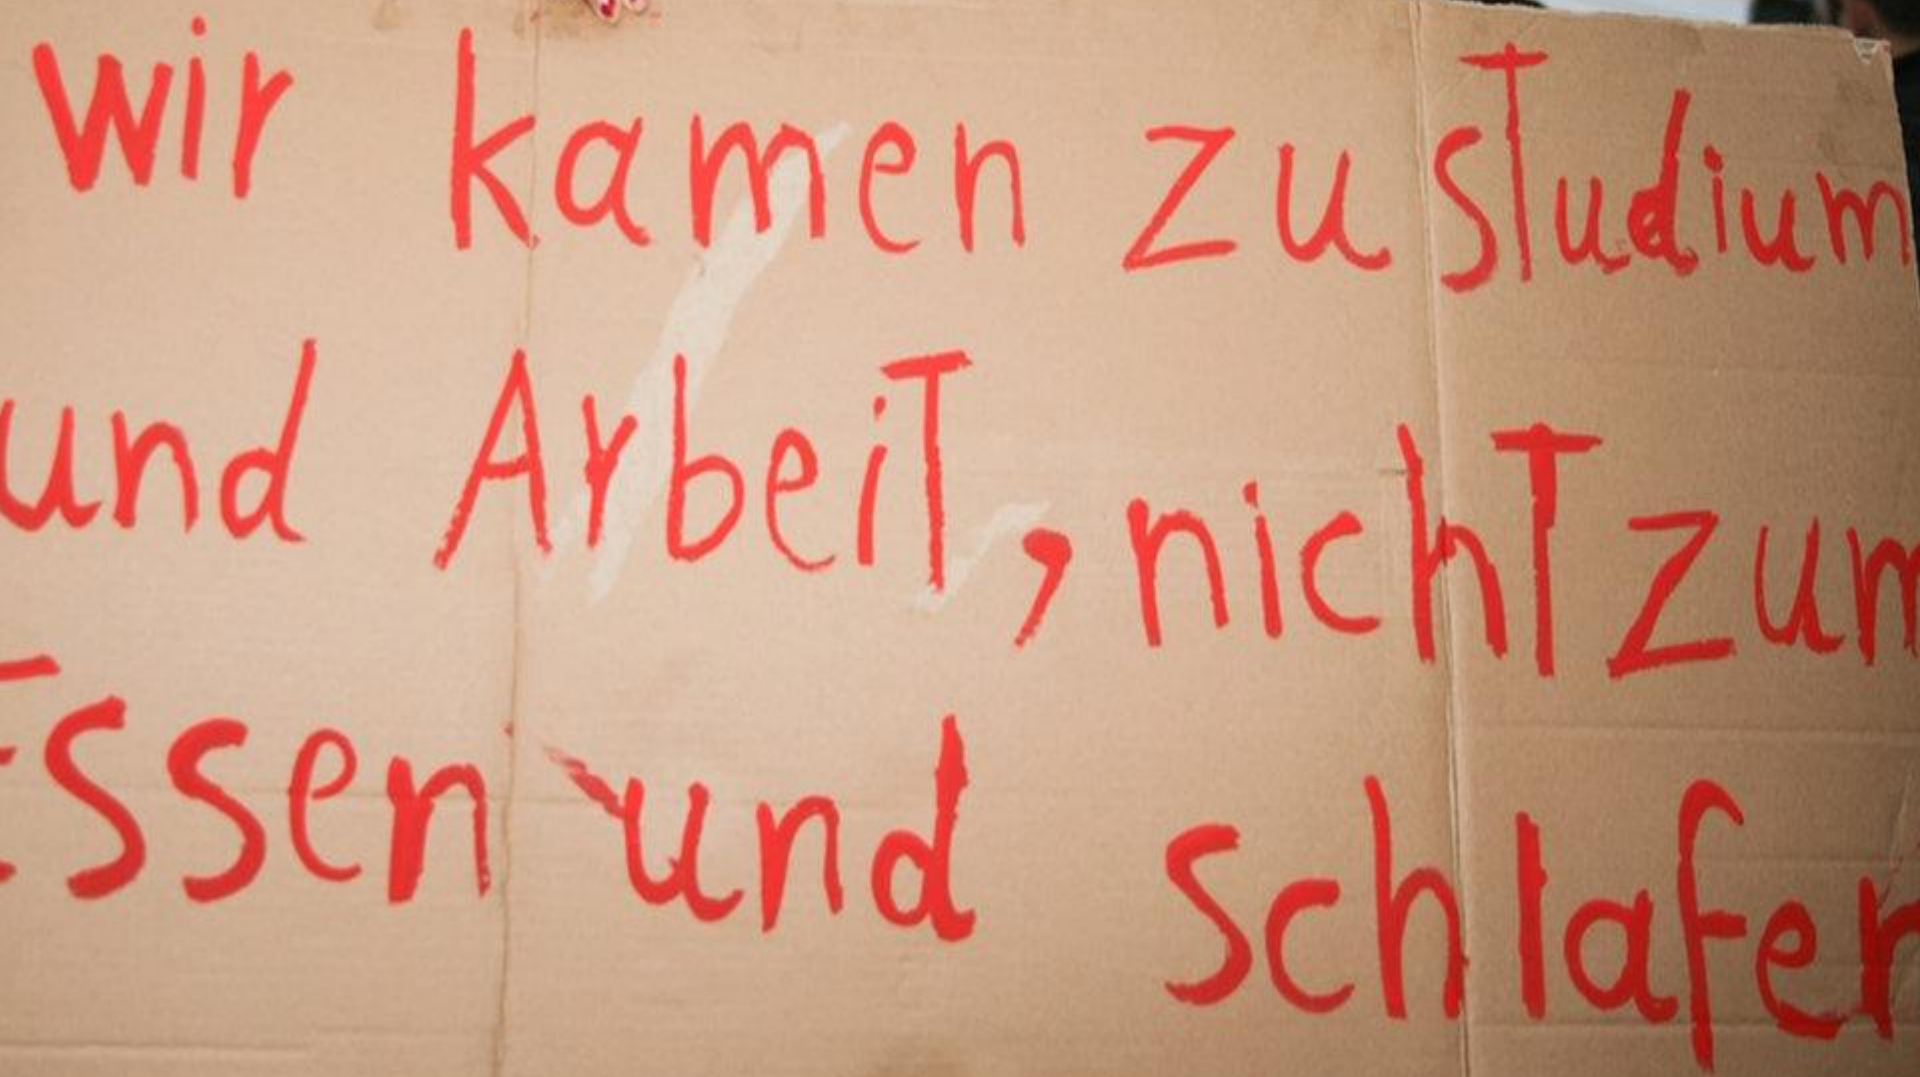 wir kamen zu studium
und Arbeit, nicht zum
Essen und schlafen